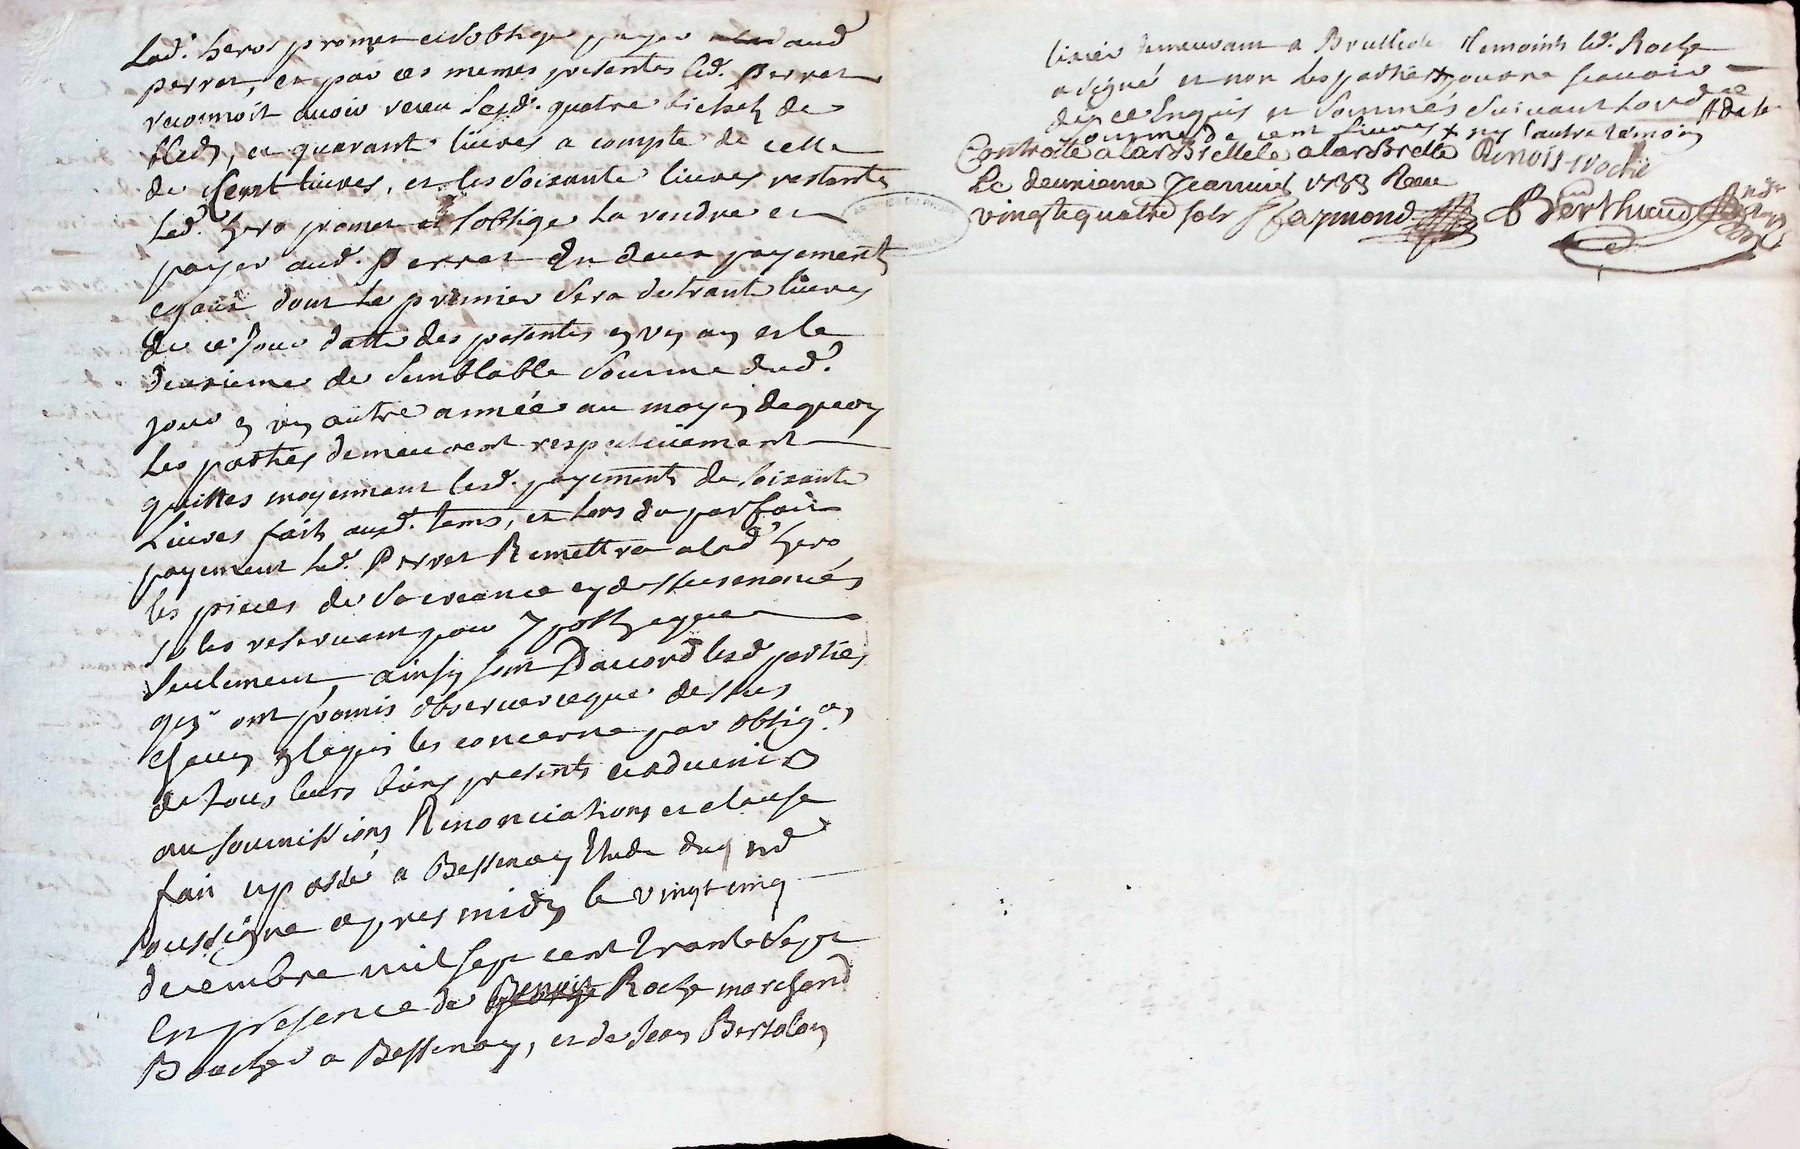 Lad. heros promet et s'oblige payer aud
perret, et par ces memes presentes led. Perret
reconnoit avoir receu lesd. quatre bichets de
bled, et quarant livres a compte de celle
de Cent livres, et les soixante livres restantes
Led. hero promet et s'oblige la rendre et
payer aud. Perret En deux payements
egaux dont le premier sera de trante livres
de ce Jour datte des presentes en un an et le
deuxieme de semblable somme dud.
jour en un autre année au moyen dequoy
Les parties demeurent respectivement
quittes moyennant lesd. payements de soixante
Livres faits auxd. tems, et lors du parfait
payement led. Perret Remettra alad hero
les pieces de sa creance cy dessus enoncés
se les reservant pour ypotheque
seulement, ainsy sont Daccord lesd parties
qui ont promis observer ce que dessus
chacun en ce qui les concerne par oblig.on
de tous leurs biens presents et advenir
au soumissions Renonciations et clause
fait et passé a Bessenay Etude du nd
soussigne apres midy le vingt cinq
decembre mil sept cent trante sept
En presence de Benoit Roche marchand
Boucher a Bessenay, et de Jean Bertolon
demeurant a Brulliole temoins led. Roche
a signé et non les parties pour ne scavoir
de ce Enquis et sommés suivant Lordce # de la
somme de cent livres + ny l'autre temoin
Controllé a larBrelle a larBrelle Benoit roche
Le deuxieme Jeanvier 1738 Receu
vingt quatre sols Raymond Berthaud